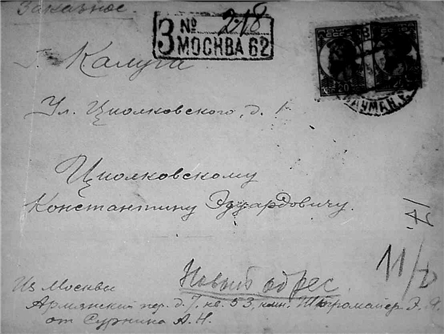 Заказное.
З № 218
МОСКВА 62
г. Калуга
Ул. Циолковского, д. 1
Циолковскому
Константину Эдуардовичу.
11/
Новый адрес
Из Москвы
Армянский пер. д. 7. кв. 53, комн. Штромайер Э. Я.
от Сурнина А. Н.